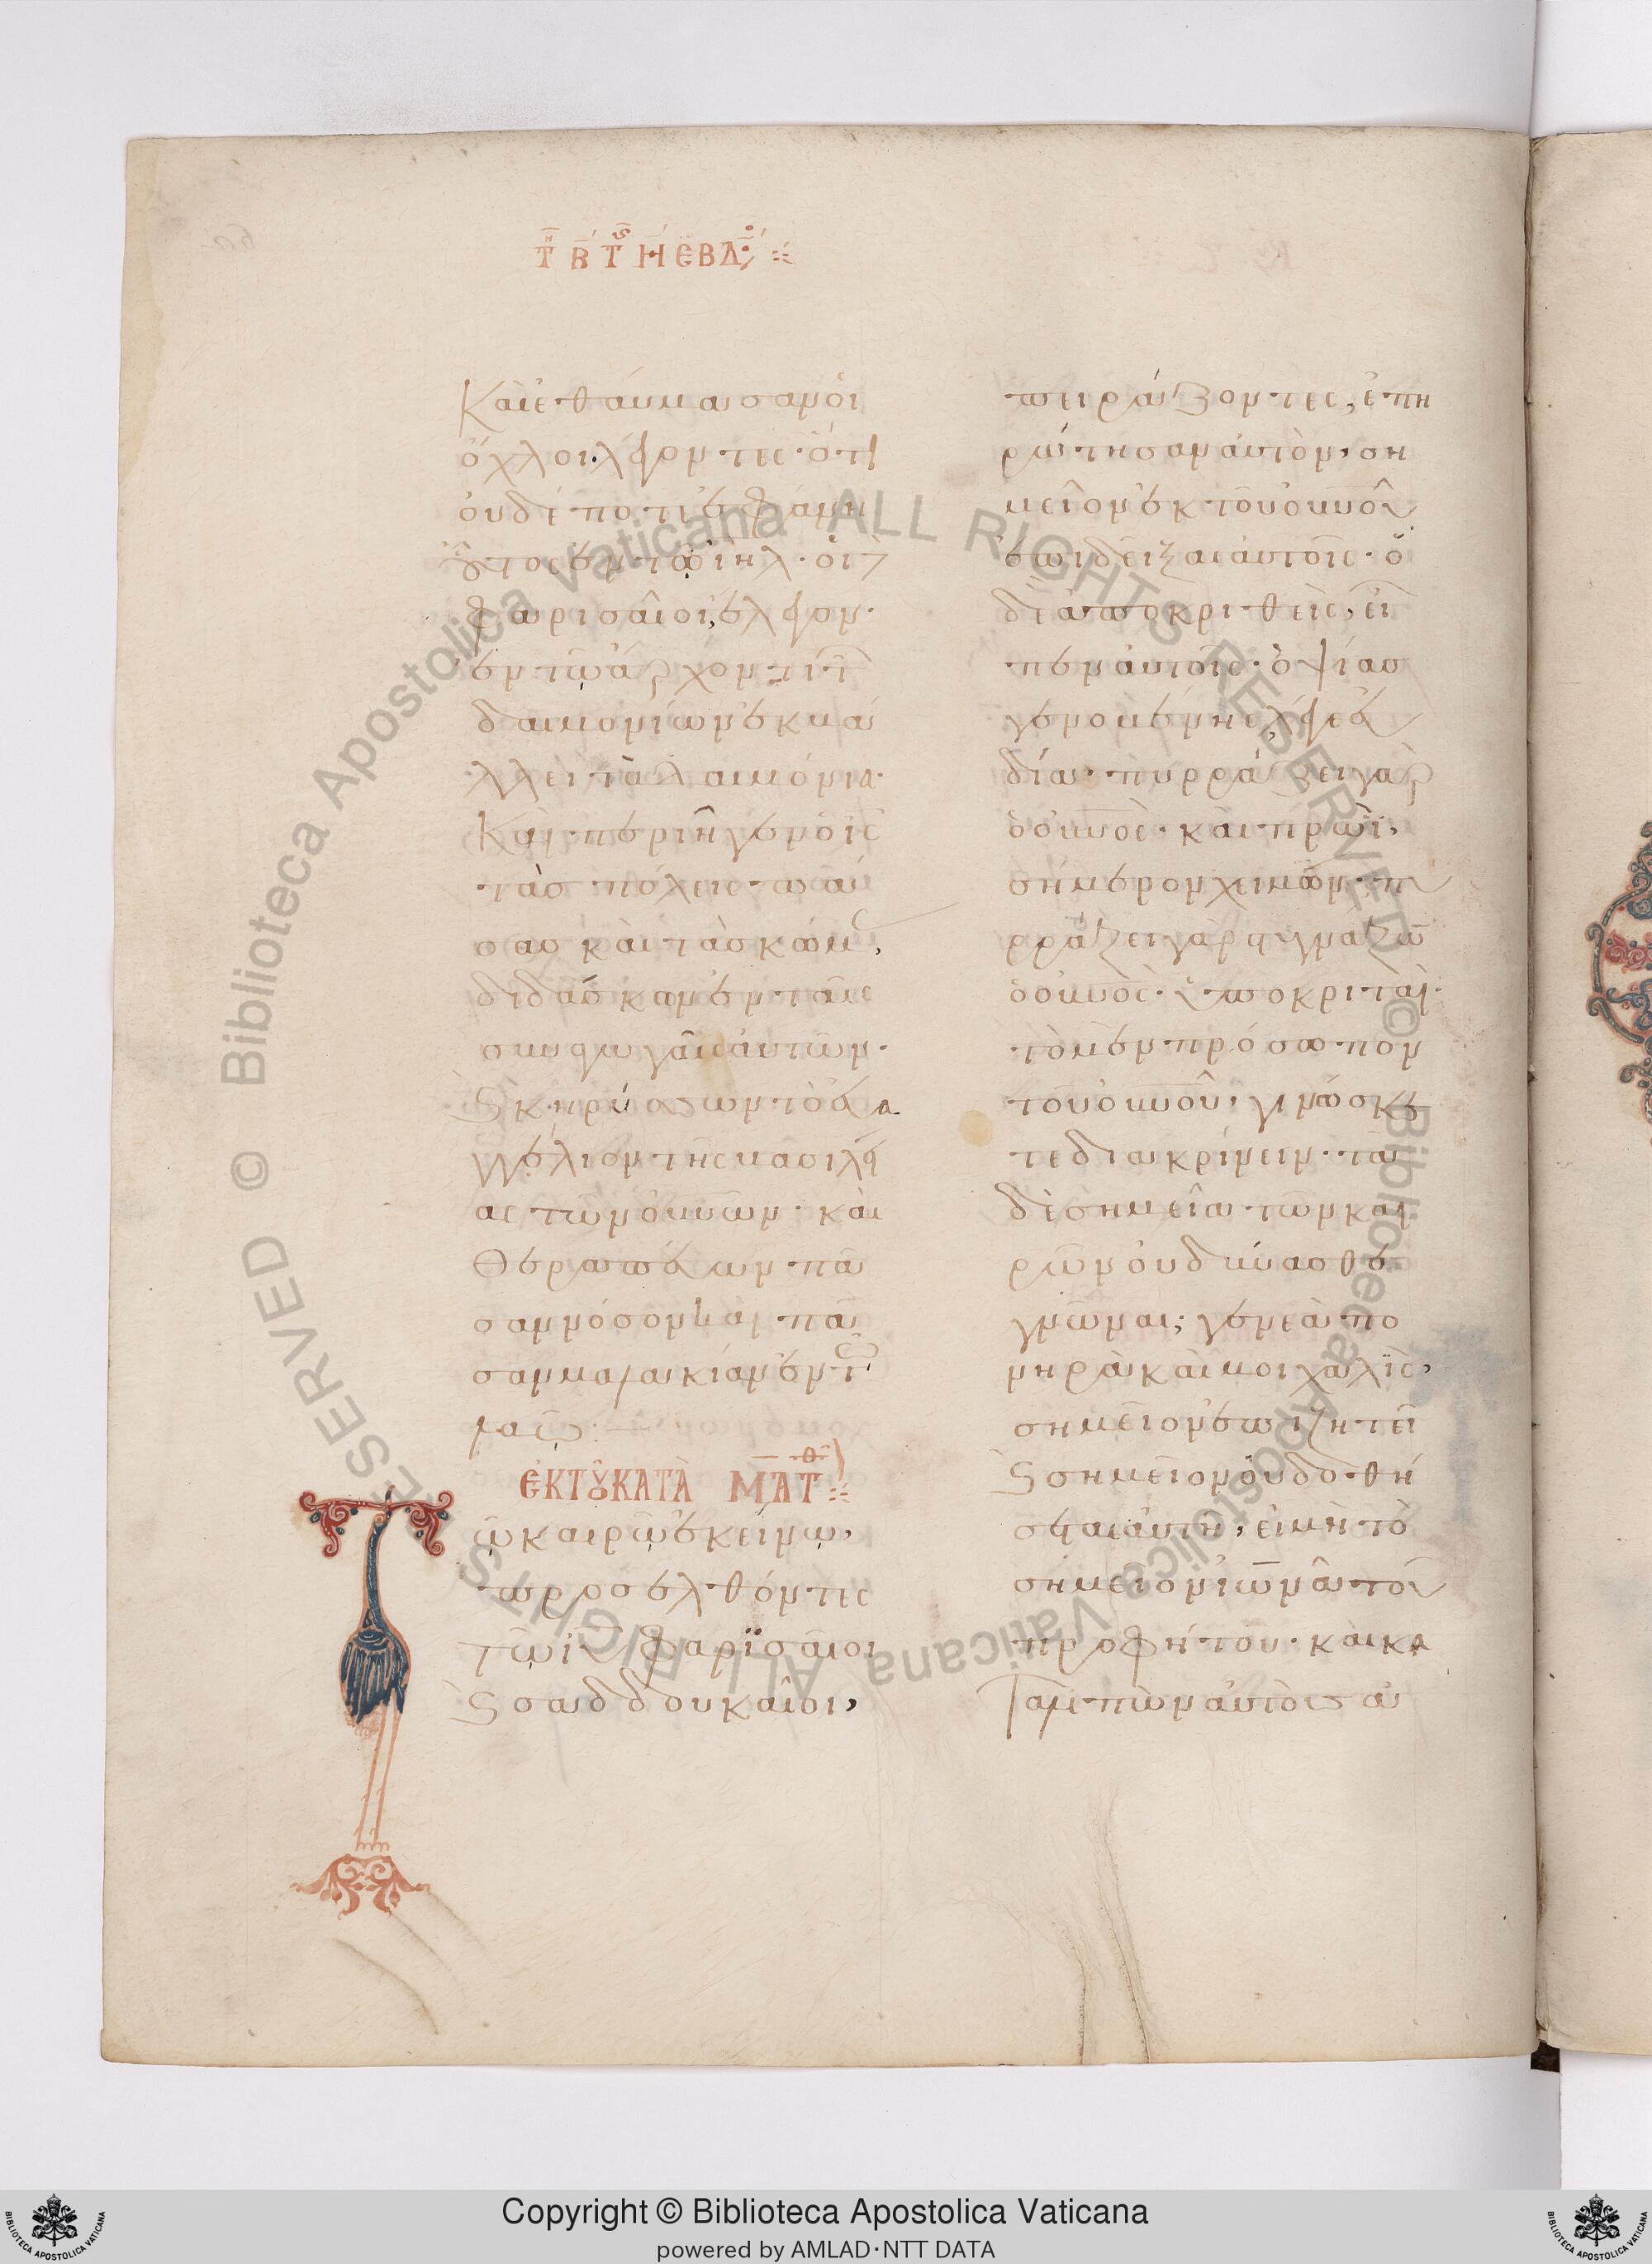 Τῇ Β τῆς Η ἑβδ
Καὶ ἐθαύμασαν οἱ
ὄχλοι λέγοντες· ὅτι
οὐδέποτε ἐφάνη
οὕτως ἐν τῷ ιηλ· οἱ δὲ
φαρισαῖοι, ἔλεγον·
ἐν τῷ ἄρχοντι τῶν
δαιμονίων ἐκβά
λλει τὰ δαιμόνια·
Καὶ περιῆγεν ὁ ις
τὰς πόλεις πά
σας καὶ τὰς κώμας,
διδάσκων ἐν ταῖς
συναγωγαῖς αὐτῶν·
ϗ κηρύσσων τὸ εὐα
γγέλιον τῆς βασιλεί
ας τῶν οὐνων· καὶ
θεραπεύων πᾶ
σαν νόσον καὶ πᾶ
σαν μαλακίαν ἐν τῷ
λαῷ:
ἘΚ ΤΟΥ ΚΑΤΑ ΜΑΤΘ
Τῷ καιρῷ ἐκείνῳ,
προσελθόντες
τῷ ιυ φαρισαῖοι
ϗ σαδδουκαῖοι,
πειράζοντες, ἐπη
ρώτησαν αὐτὸν, ση
μεῖον ἐκ τοῦ οὐνοῦ
ἐπιδεῖξαι αὐτοῖς· ὁ
δὲ ἀποκριθεὶς, εἶ
πεν αὐτοῖς· ὀψίας
γενομένης λέγετε εὐ
δία· πυρράζει γὰρ
ὁ οὐνος· καὶ πρωῒ,
σήμερον χειμών· πυ
ρράζει γὰρ στυγνάζων
ὁ οὐνὸς· ὑποκριταὶ·
τὸ μὲν πρόσωπον
τοῦ οὐνοῦ, γινώσκε
τε διακρίνειν· τὰ
δὲ σημεῖα τῶν και
ρῶν οὐ δύνασθε
γνῶναι; γενεὰ πο
νηρὰ καὶ μοιχαλὶς,
σημεῖον ἐπιζητεῖ
ϗ σημεῖον οὐ δοθή
σεται αὐτῇ, εἰ μὴ τὸ
σημεῖον ἰωνᾶ τοῦ
προφήτου· καὶ κα
ταλιπὼν αὐτοὺς ἀ
Copyright © Biblioteca Apostolica Vaticana
powered by AMLAD·NTT DATA